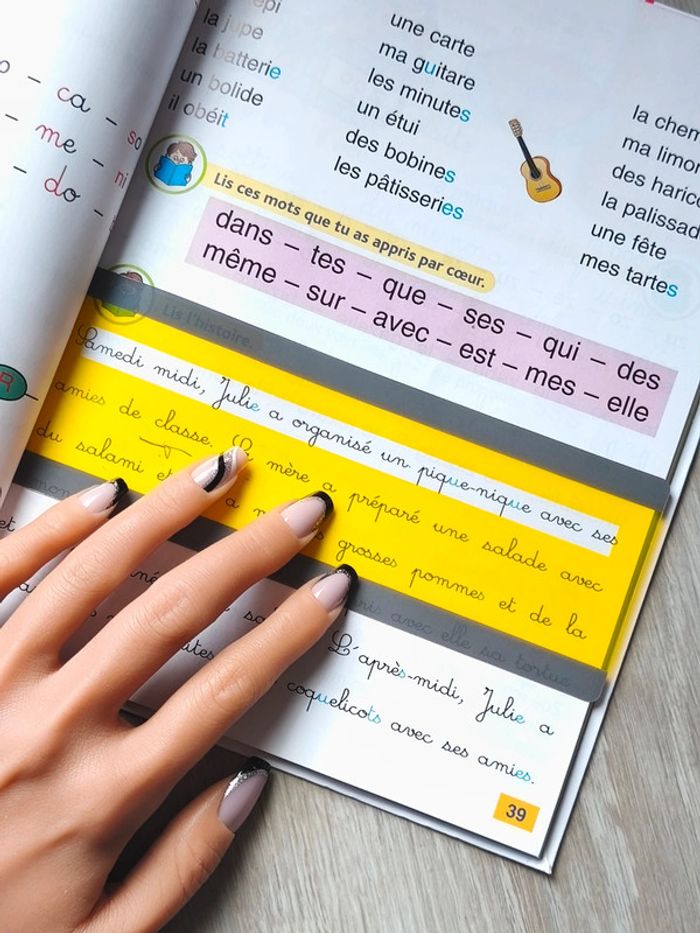 ca – so
me – ni
do –
épi
la jupe
la batterie
un bolide
il obéit
une carte
ma guitare
les minutes
un étui
des bobines
les pâtisseries
une fête
mes tartes
Lis ces mots que tu as appris par cœur.
dans – tes – que – ses – qui – des
même – sur – avec – est – mes – elle
Lis l'histoire.
Samedi midi, Julie a organisé un pique-nique avec ses
amies de classe. mère a préparé une salade avec
du salami et grosses pommes et de la
avec elle sa tortue
L'après-midi, Julie a
coquelicots avec ses amies.
39